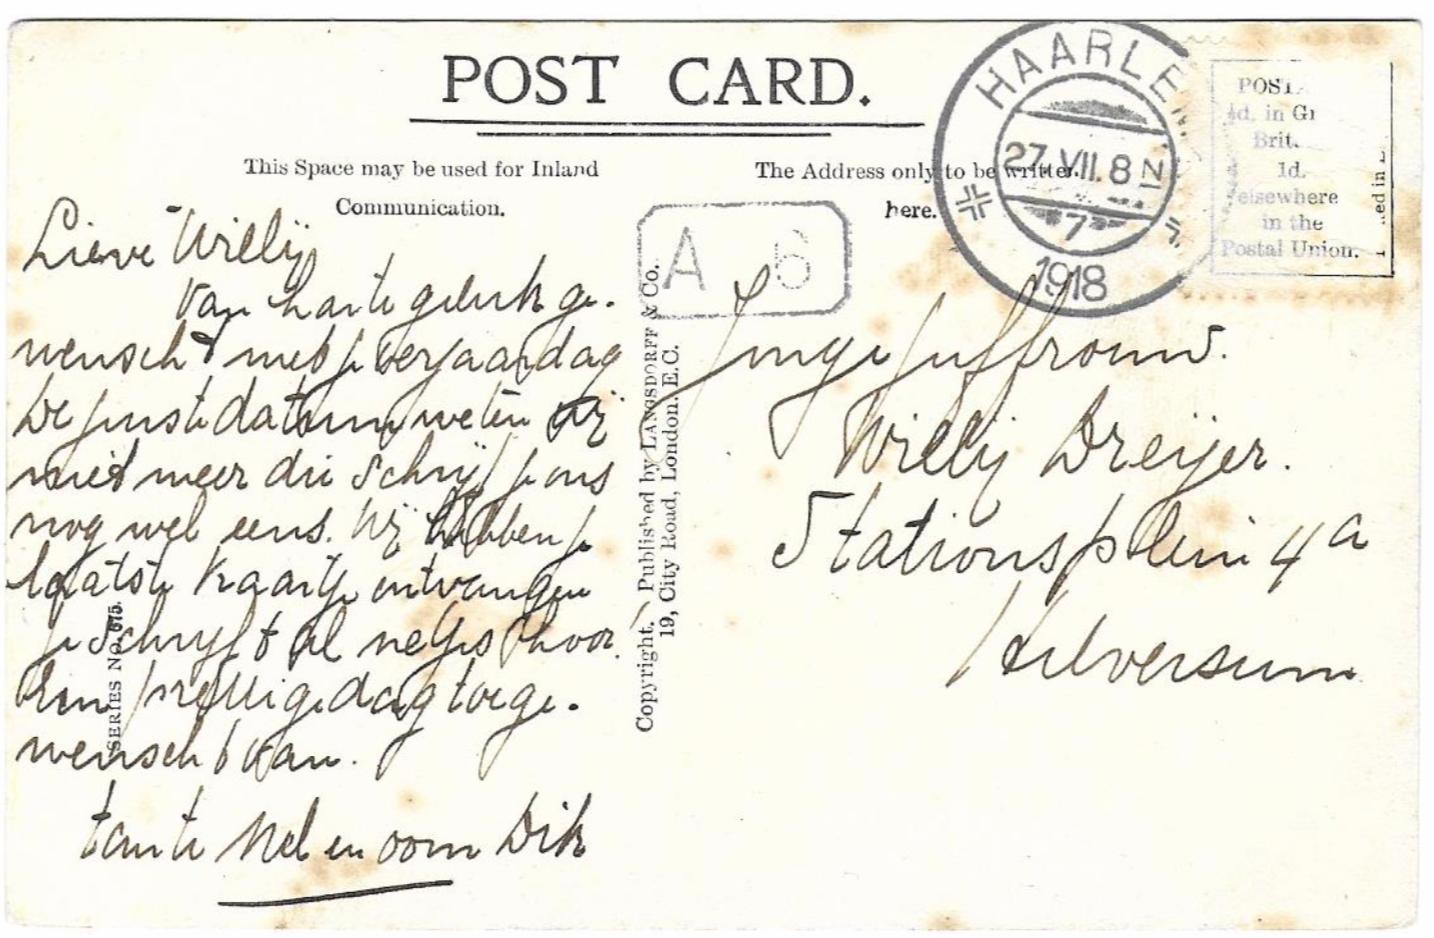 POST CARD.
This Space may be used for Inland
Communication.
The Address only to be written
here.
HAARLEM
27.VII.8 N
7
1918
POST
½d. in Gr
Brit.
1d.
elsewhere
in the
Postal Union.
ed in
A 6
Lieve Willij
Van harte geluk ge-
wenscht met je verjaardag
De juiste datum weten wij
niet meer die schrijf je ons
nog wel eens. Wij hebben je
laatste kaartje ontvangen
je schrijft al netjes hoor.
Een prettige dag toege-
wenscht van.
tante Nel en oom Dik
Jonge juffrouw.
Willij Dreijer.
Stationsplein 4a
Hilversum
Copyright. Published by LANGSDORFF & Co.
19, City Road, London. E.C.
SERIES No. 675.